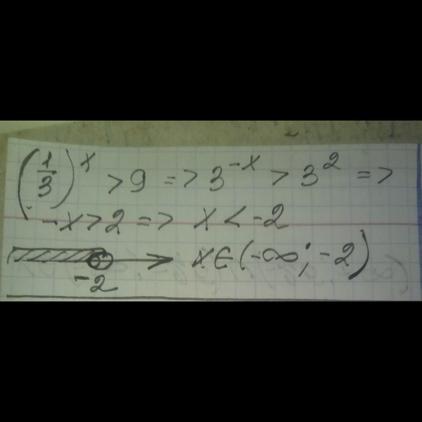 (1/3)^x > 9 => 3^-x > 3^2 =>
-x > 2 => x < -2
-2 x∈(-∞; -2)